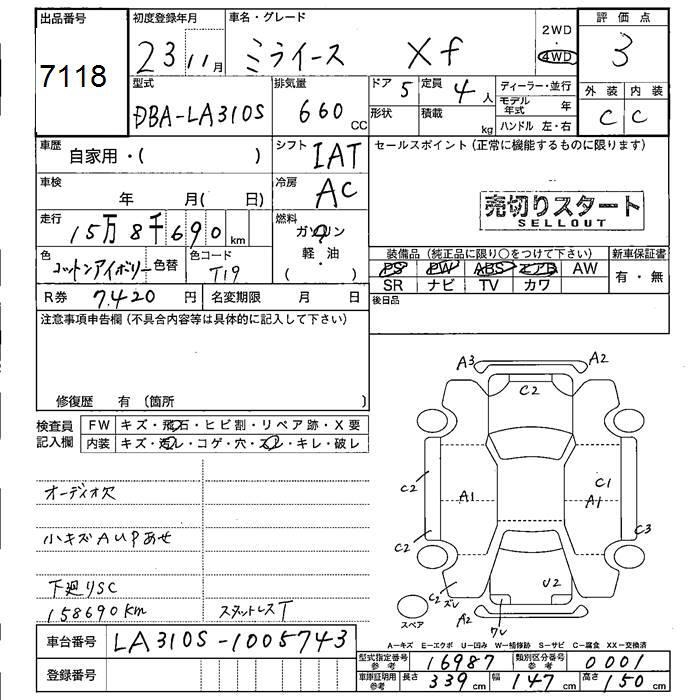 出品番号
7118
初度登録年月
23 11月
車名・グレード
ミライース Xf
2WD
4WD
評価点
3
外装 内装
C C
型式
DBA-LA310S
排気量
660 CC
ドア 5
定員 4人
形状
積載 kg
ディーラー・並行
モデル年式 年
ハンドル 左・右
車歴
自家用・( )
シフト IAT
セールスポイント(正常に機能するものに限ります)
車検
年 月( 日)
冷房 AC
売切りスタート
SELLOUT
走行
15万8千690km
燃料
ガソリン
軽・油
( )
色
コットンアイボリー
色替
色コード
T19
装備品(純正品に限り○をつけて下さい)
新車保証書
PS PW ABS エアB AW
SR ナビ TV カワ
有・無
R券 7.420円
名変期限 月 日
後日品
注意事項申告欄(不具合内容等は具体的に記入して下さい)
修復歴 有(箇所 )
検査員
記入欄
FW キズ・飛石・ヒビ割・リペア跡・X要
内装 キズ・汚レ・コゲ・穴・スレ・キレ・破レ
オーディオ欠
小キズAUPあせ
下廻りSC
158690km
スタットレスT
A3 A2
C2
C2
A1
C1
A1
C2
C3
C2
ズレ
U2
A2
ワレ
スペア
A−キズ E−エクボ U−凹み W−補修跡 S−サビ C−腐食 XX−交換済
車台番号
LA310S-1005743
登録番号
型式指定番号
参考
16987
類別区分番号
参考
0001
車庫証明用
参考
長さ 339cm
幅 147cm
高さ 150cm